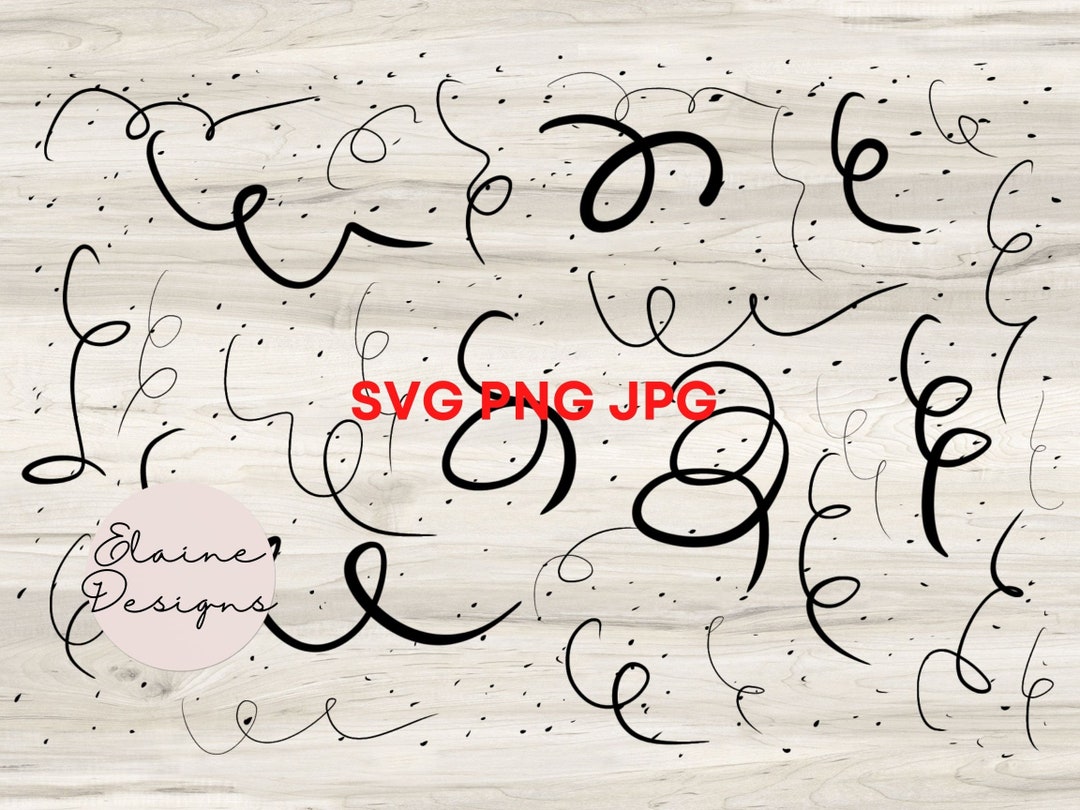 SVG PNG JPG
Elaine
Designs